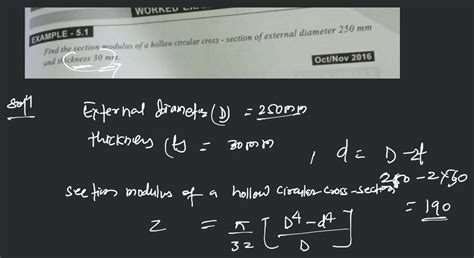 WORKED
EXAMPLE - 5.1
Find the section modulus of a hollow circular cross - section of external diameter 250 mm
and thickness 30 mm.
Oct/Nov 2016
Sol
External diameter (D) = 250mm
thickness (t) = 30mm
, d = D-2t
250-2×30
section modulus of a hollow circular cross-section
= 190
Z = π/32 [D⁴-d⁴/D]